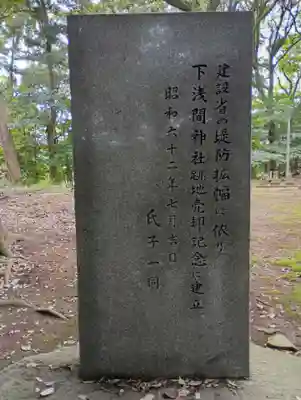 建設省の堤防拡幅に依り
下浅間神社跡地売却記念に建立
昭和六十二年七月六日
氏子一同